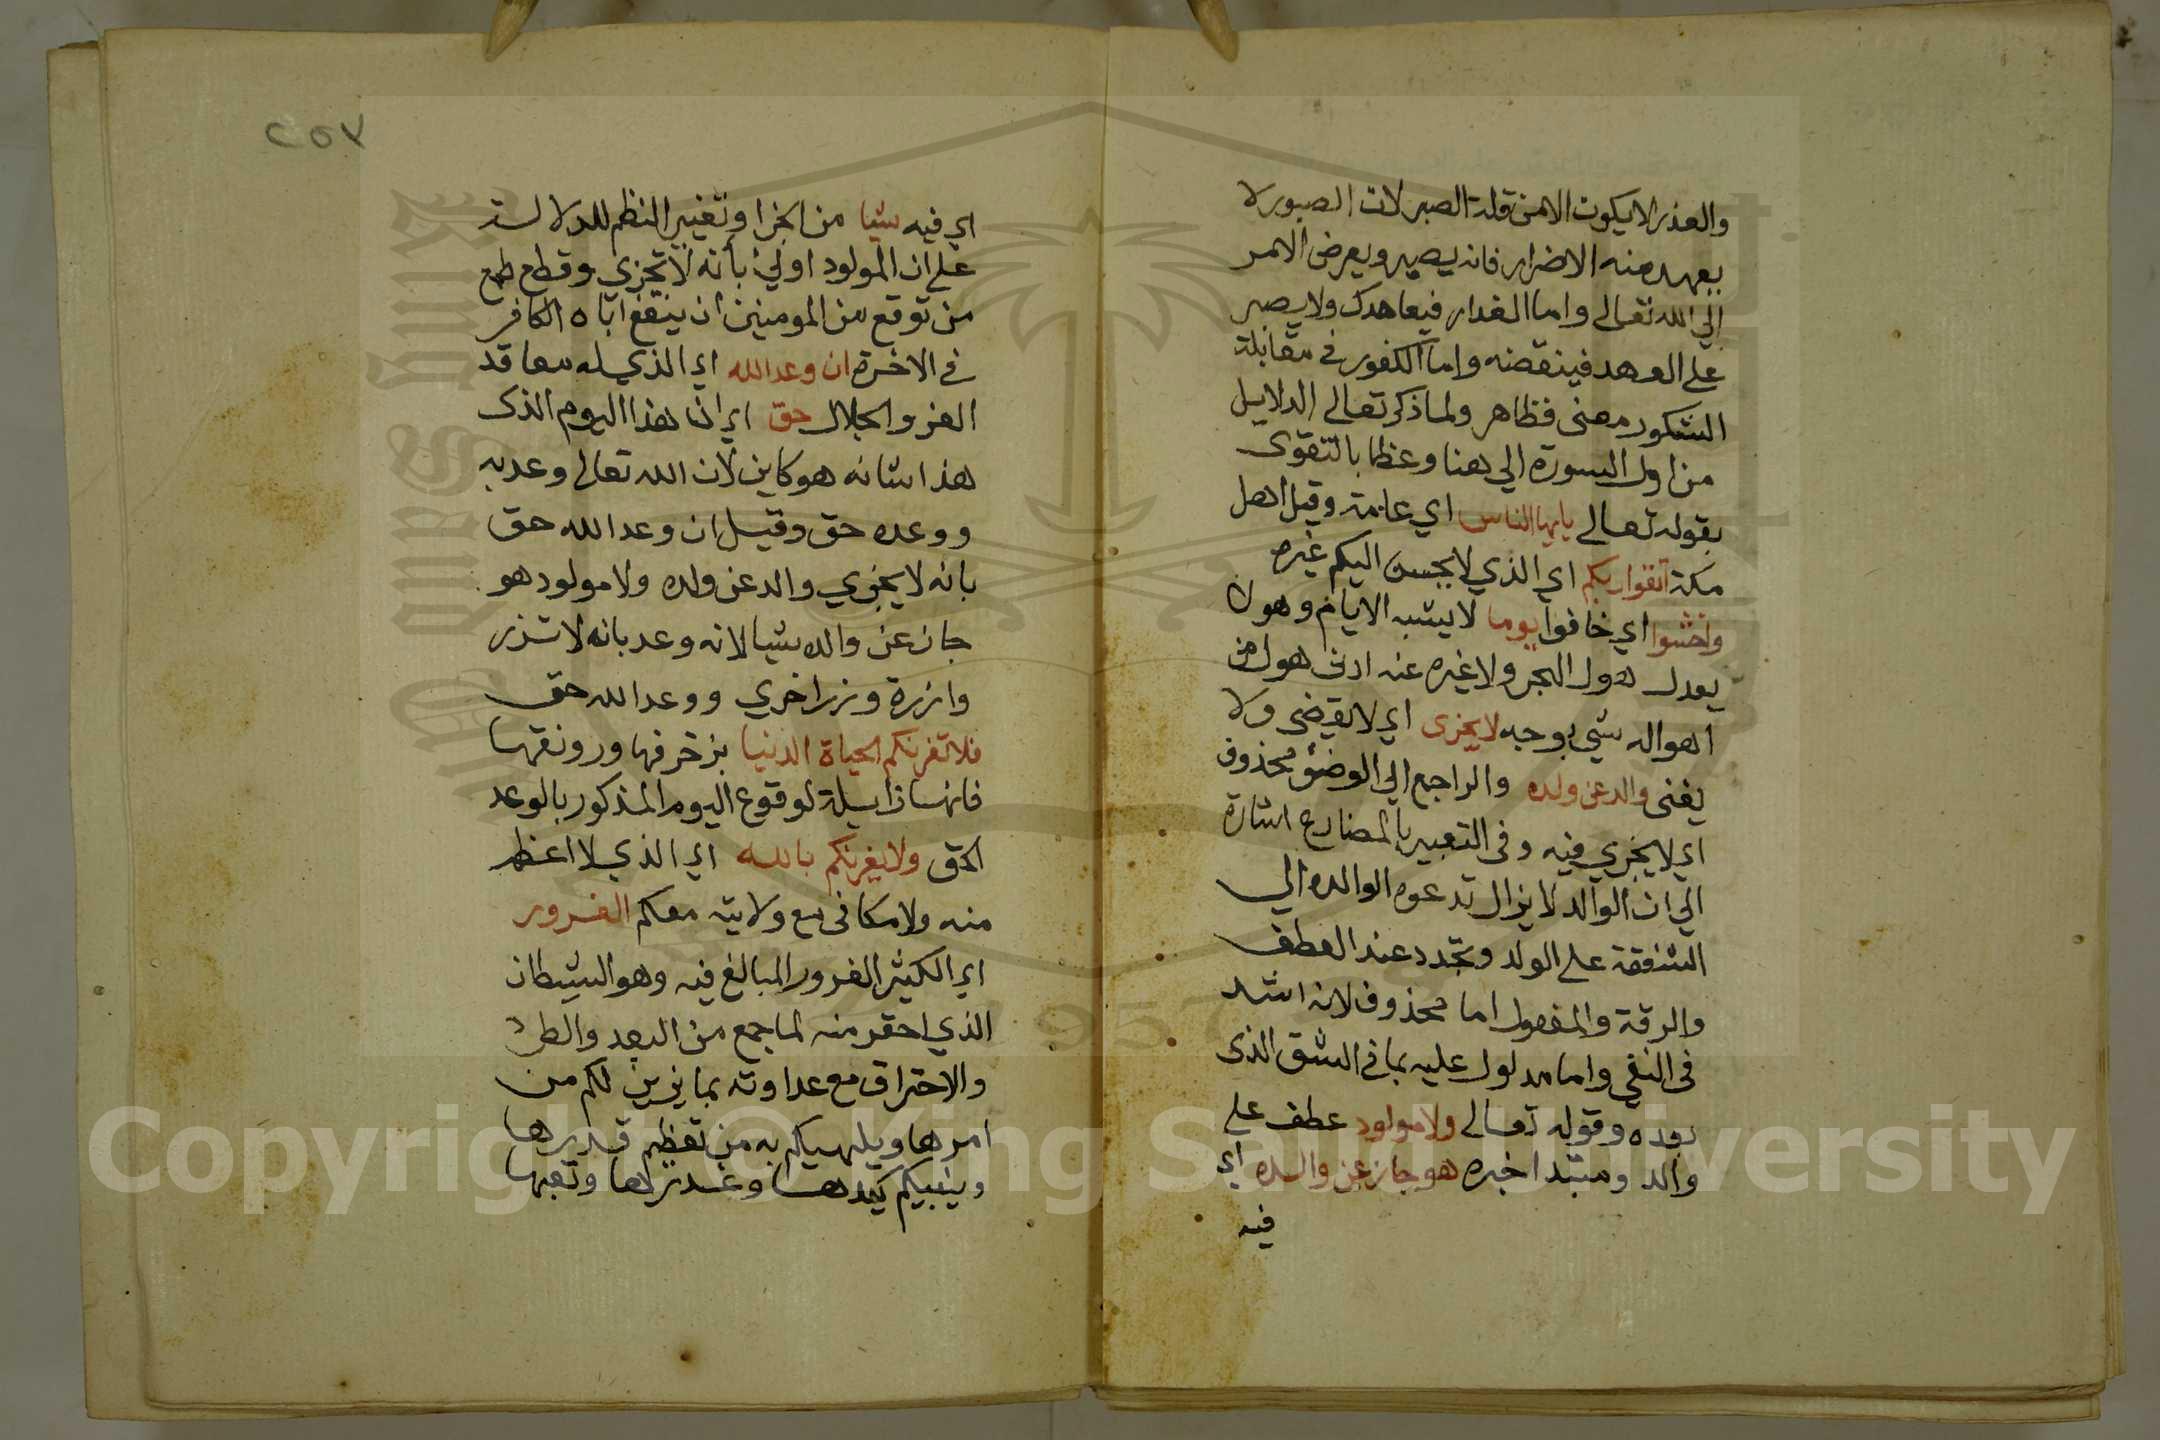 والعذر لا يكون الا من قلة الصبر لان الصبور لا
يعهد منه الاضرار فانه يصبر ويعرض الامر
الي الله تعالي واما الغدار فيعاهدك ولا يصبر
علي العهد فينقضه واما الكفور في مقابلة
الشكور معني فظاهر ولما ذكر تعالي الدلايل
من اول السورة الي هنا وعظا بالتقوي
بقوله تعالي يايها الناس اي عامة وقيل اهل
مكة اتقوا ربكم اي الذي لا يحسن اليكم غيره
واخشوا اي خافوا يوما لا يشبه الايام وهول
يعدل هول البحر ولا غيره عنه ادني هول من
اهواله شي بوجه لا يجزي اي لا يقضي ولا
يغني والد عن ولده والراجع الي الموصوف محذوف
اي لا يجزي فيه وفي التعبير بالمضارع اشارة
الي ان الوالد لا يزال تدعوه الوالده الي
الشفقة علي الولد وتجدد عند العطف
والرقة والمفعول اما محذوف لانه اشد
في النفي واما مدلول عليه بما في الشق الذي
بعده وقوله تعالي ولا مولود عطف علي
والد ومبتدا خبره هو جاز عن والده اي
فيه
٢٥٧
اي فيه شيا من الجزا وتغيير النظم للدلالة
علي ان المولود اولي بأنه لا تجزي وقطع طمع
من توقع من المومنين ان ينفع اباه الكافر
في الاخرة ان وعد الله اي الذي له معاقد
العز والجلال حق اي ان هذا اليوم الذي
هذا شانه هو كاين لان الله تعالي وعد به
ووعده حق وقيل ان وعد الله حق
بانه لا يجزي والد عن ولده ولا مولود هو
جاز عن والده شيا لانه وعد بانه لا تزر
وازرة وزر اخري ووعد الله حق
فلا تغرنكم الحياة الدنيا بزخرفها ورونقها
فانها زايلة لوقوع اليوم المذكور بالوعد
الحق ولا يغرنكم بالله اي الذي لا اعظم
منه ولا مكافي مع ولايته معكم الغرور
اي الكثير الغرور المبالغ فيه وهو الشيطان
الذي احقر منه لما جمع من البعد والطرد
والاحتراق مع عداوته بما يزين لكم من
امرها ويلهيكم به من تعظيم قدرها
وينسيكم كيدها وغدرها وتعبها
Copyright © King Saud University
King Saud
1957